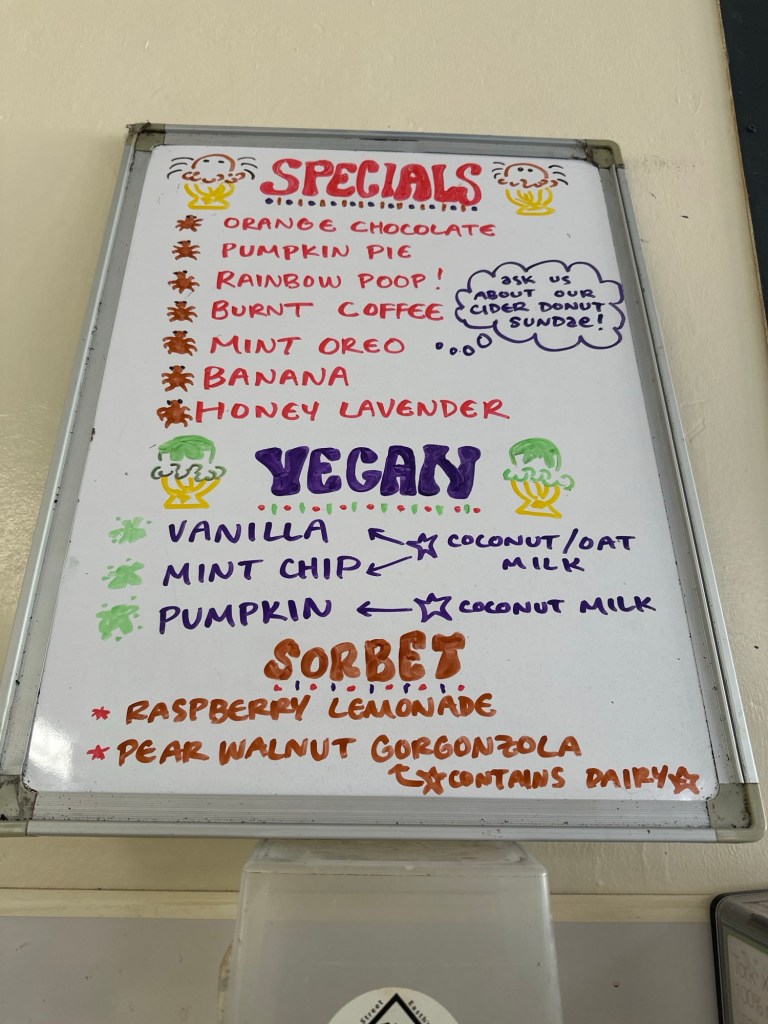 SPECIALS
ORANGE CHOCOLATE
PUMPKIN PIE
RAINBOW POOP!
BURNT COFFEE
MINT OREO
BANANA
HONEY LAVENDER
ASK US
ABOUT OUR
CIDER DONUT
SUNDAE!
VEGAN
VANILLA
MINT CHIP
COCONUT/OAT
MILK
PUMPKIN
COCONUT MILK
SORBET
RASPBERRY LEMONADE
PEAR WALNUT GORGONZOLA
CONTAINS DAIRY
Street